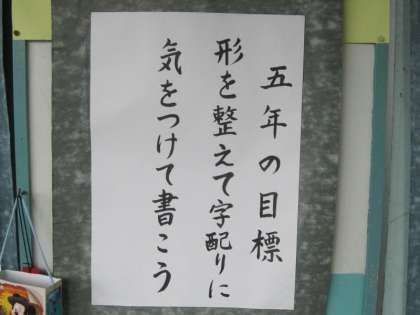 五年の目標
形を整えて字配りに
気をつけて書こう